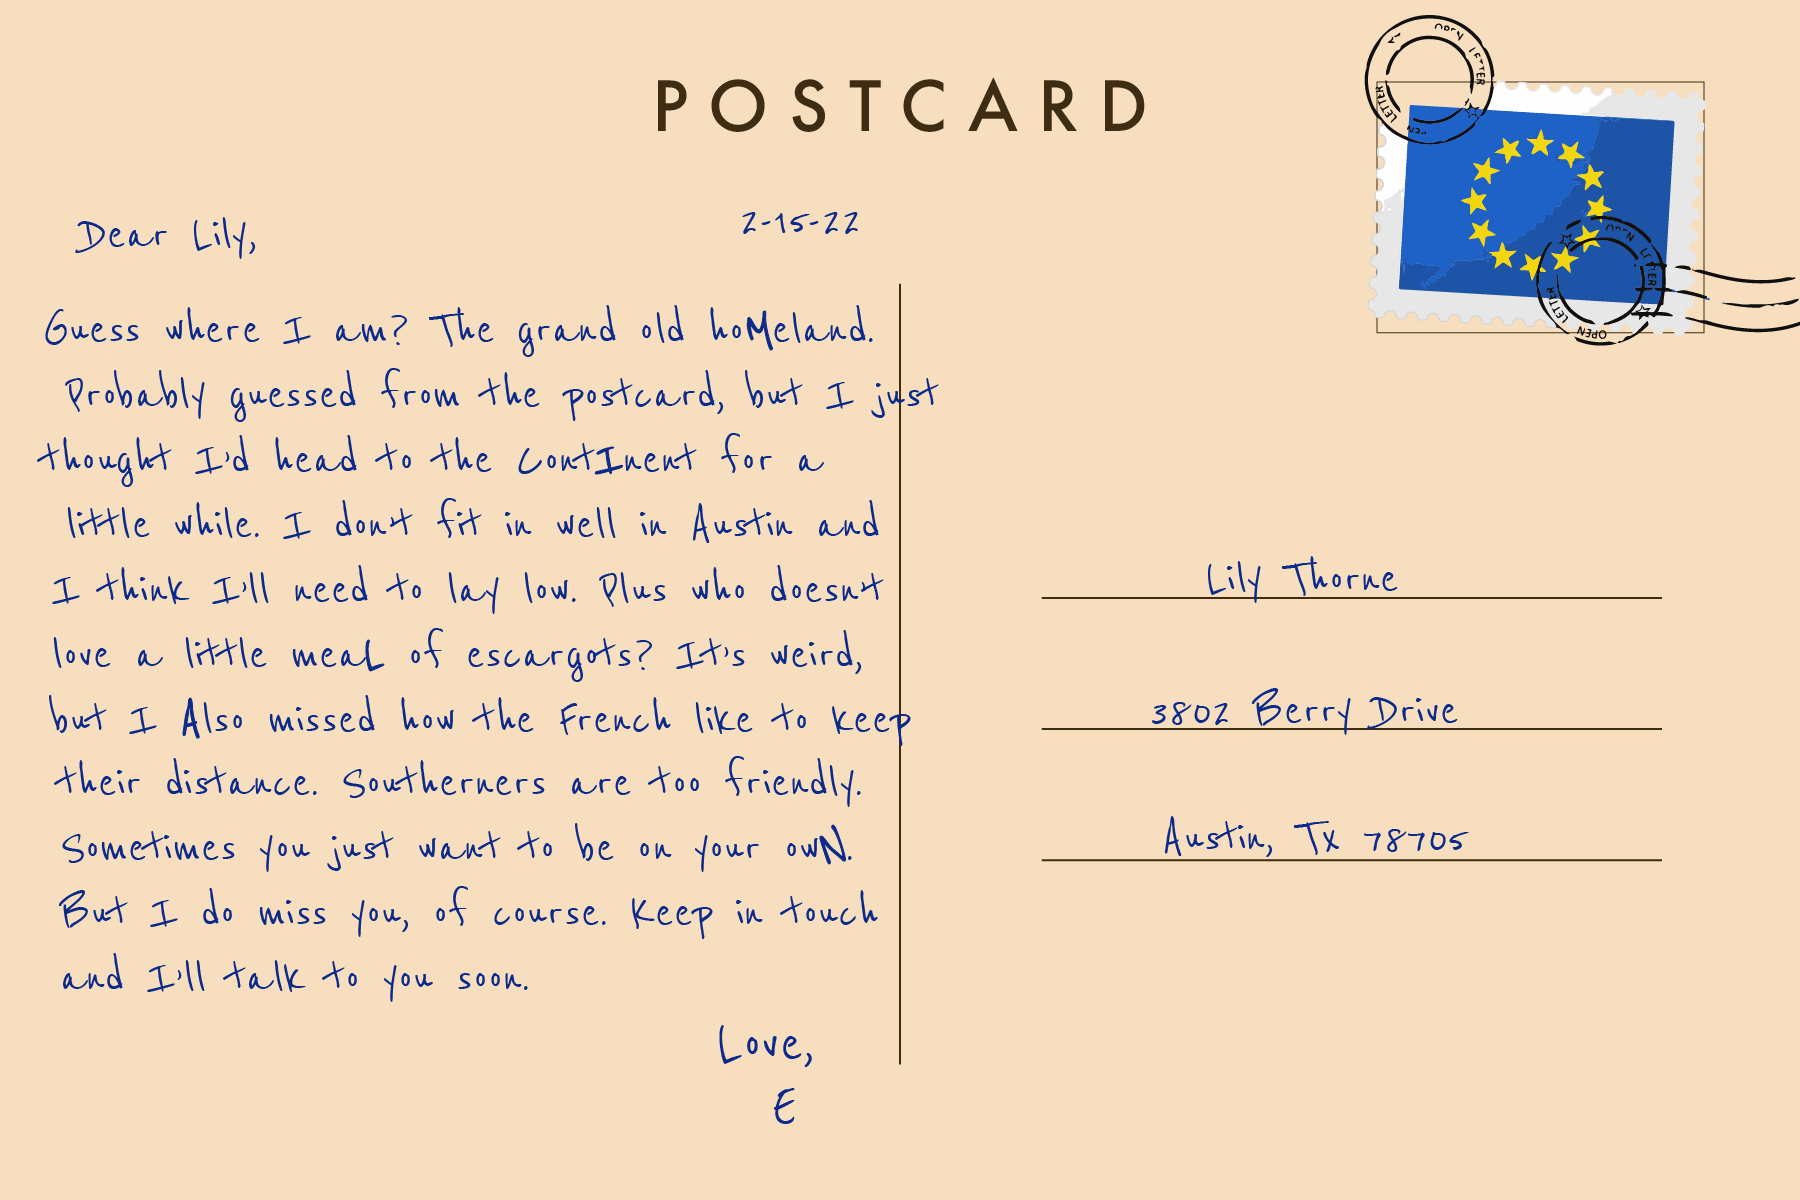 POSTCARD
OPEN LETTER
OPEN LETTER
2-15-22
Dear Lily,
Guess where I am? The grand old hoMeland.
Probably guessed from the postcard, but I just
thought I'd head to the contInent for a
little while. I don't fit in well in Austin and
I think I'll need to lay low. Plus who doesn't
love a little meaL of escargots? It's weird,
but I Also missed how the French like to keep
their distance. Southerners are too friendly.
Sometimes you just want to be on your owN.
But I do miss you, of course. Keep in touch
and I'll talk to you soon.
Love,
E
OPEN LETTER
OPEN LETTER
Lily Thorne
3802 Berry Drive
Austin, Tx 78705